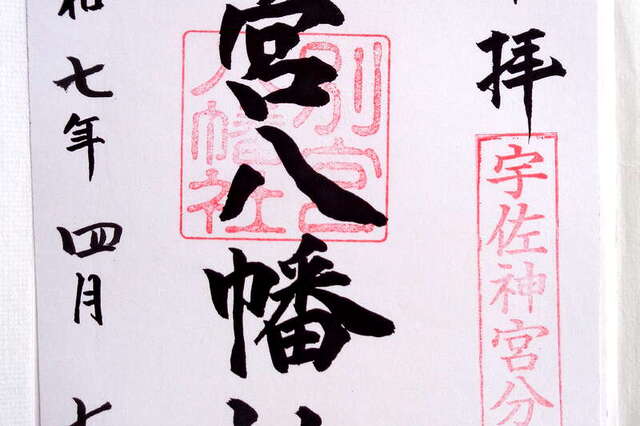 拝
宇佐神宮分
宮八幡
別宮
八幡社
和七年四月七